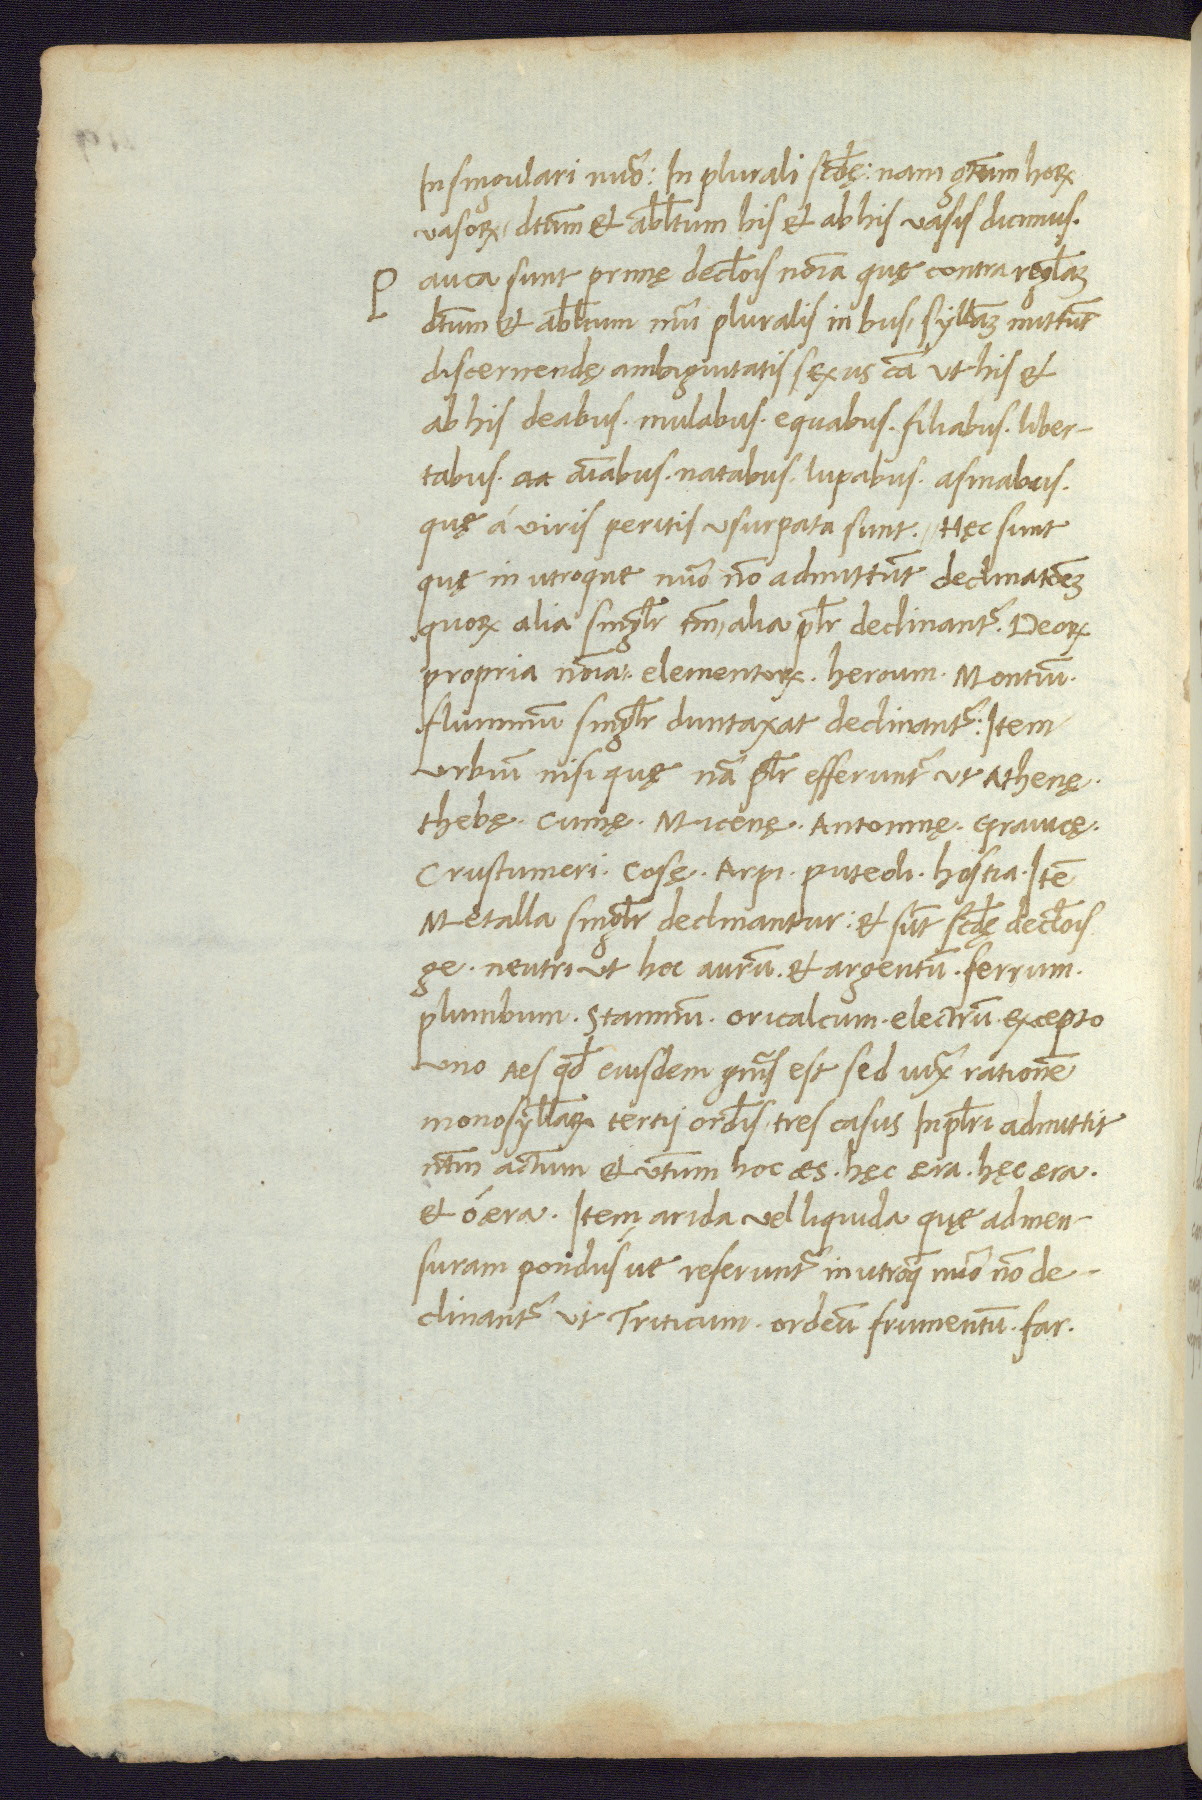 In singulari nũo: In plurali scđę: nam gtũm horꝝ
vasorꝝ, dtũm et abłtum his et ab his vasis dicimus.
Pauca sunt primę decłois noĩa quę contra regłaꝫ
dtũm et abłtum nũi pluralis in bus, syłłaꝫ mittũt
discernendę ambiguitatis sexus cã ut his et
ab his deabus. mulabus. equabus. filiabus. liber-
tabus. aĩabus. natabus. lupabus. asinabus.
quę á viris peritis usurpata sunt. Hęc sunt
quę in utroque nũo nõ admittũt declinatõeꝫ
quorꝝ alia singłr tm̃, alia płr declinant᷑. Deorꝝ
propria noĩa. elementorꝝ. heroum. Montiũ.
fluminũ singłr duntaxat declinant᷑: Item
Urbiũ nisi quę nã płr efferunt᷑ ut Athenę.
thebę. Cumę. Micenę. Antomnę. Gravicę.
Crustumeri. Cosę. Arpi. puteoli. hostia. Itẽ
Metalla singłr declinantur: et sũt scđę decłois
ge. neutri ut hoc aurũ. et argentũ. ferrum.
plumbum. Stannũ. oricalcum. electrũ. excepto
uno Aes qđ eiusdem gnĩs est sed iux᷑ rationẽ
monosyłłaꝝ tertij ordĩs, tres casus In płri admittit
ntĩm actĩum et vtĩum hoc æs. hęc æra. hęc æra.
et ó æra. Item arida vel liquida quę ad men-
suram pondus ue referunt᷑ in utroq̃ nũo nõ de-
clinant᷑ ut Triticum. ordeũ frumentũ. far.